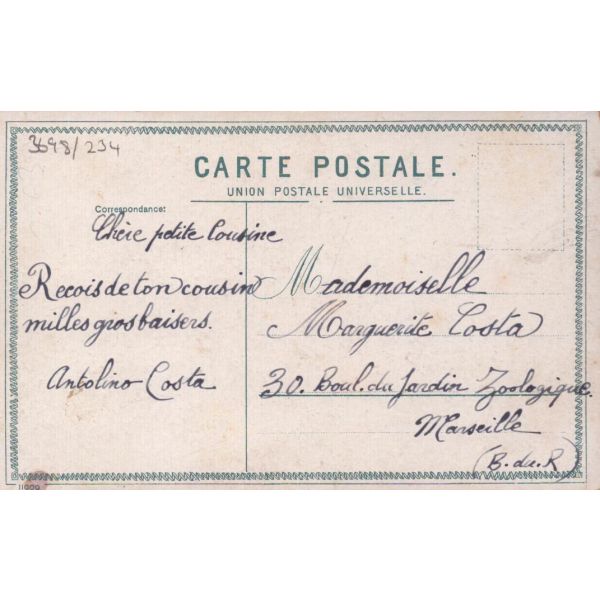 3698/234
CARTE POSTALE.
UNION POSTALE UNIVERSELLE.
Correspondance:
Chère petite Cousine
Recois de ton cousin
milles gros baisers.
Antolino Costa
Mademoiselle
Marguerite Costa
30. Boul. du Jardin Zoologique.
Marseille
(B. du. R)